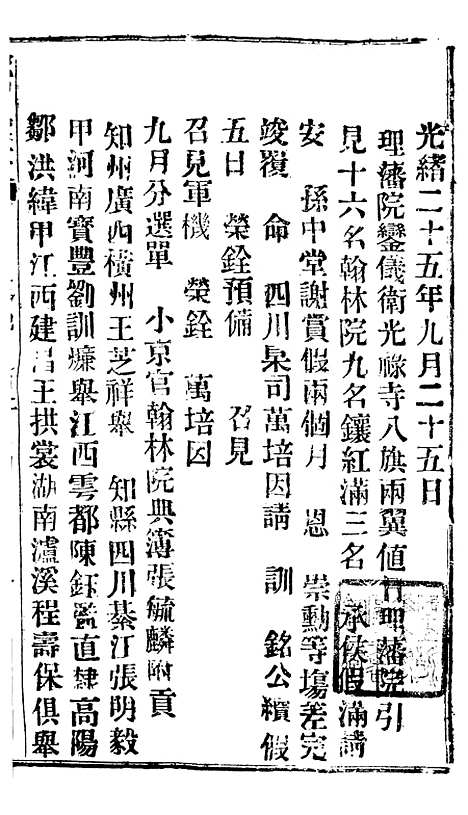 光緒二十五年九月二十五日
理藩院鑾儀衛光祿寺八旗兩翼値日理藩院引
見十六名翰林院九名鑲紅滿三名 承侯假滿請
安 孫中堂謝賞假兩個月 恩 崇勳等塲差完
竣覆 命 四川臬司萬培因請 訓 銘公續假
五日 榮銓預備 召見
召見軍機 榮銓 萬培因
九月分選單 小京官翰林院典簿張毓麟附貢
知州廣西橫州王芝祥舉 知縣四川綦江張明毅
甲河南寶豐劉訓㷠舉江西雩都陳鈺監直隸高陽
鄒洪緯甲江西建昌王拱裳湖南瀘溪程壽保俱舉